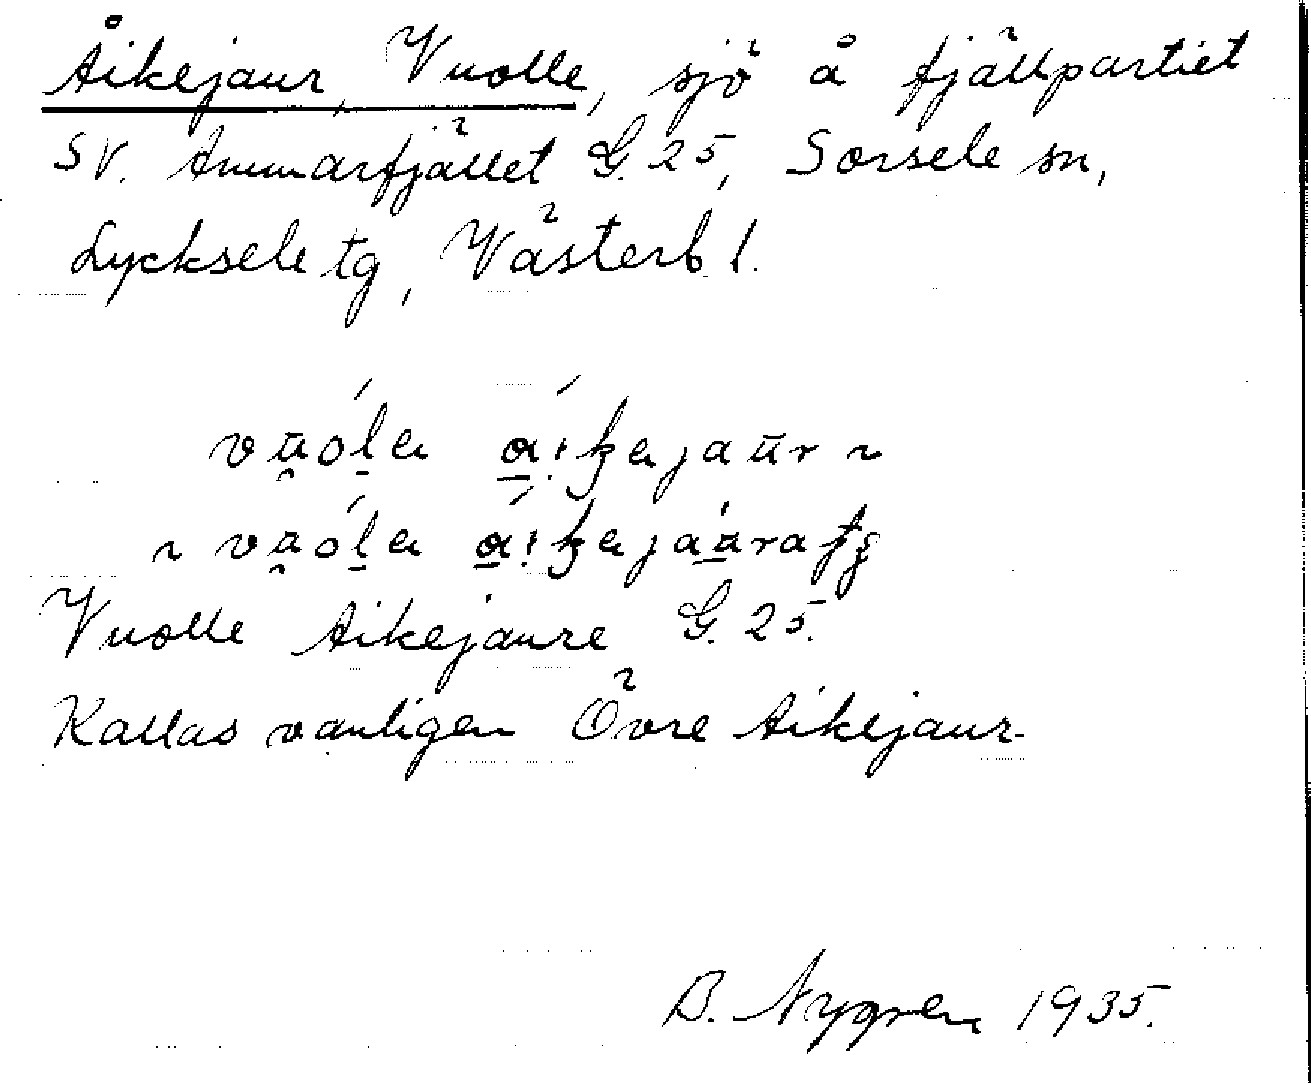 Åikejaur, Vuolle, sjö å fjällpartiet
SV. Ammarfjället G. 25, Sorsele sn,
Lycksele tg, Västerb l.
Vuolle Aikejaure G. 25.
Kallas vanligen Övre Aikejaur
B. Nygren 1935.